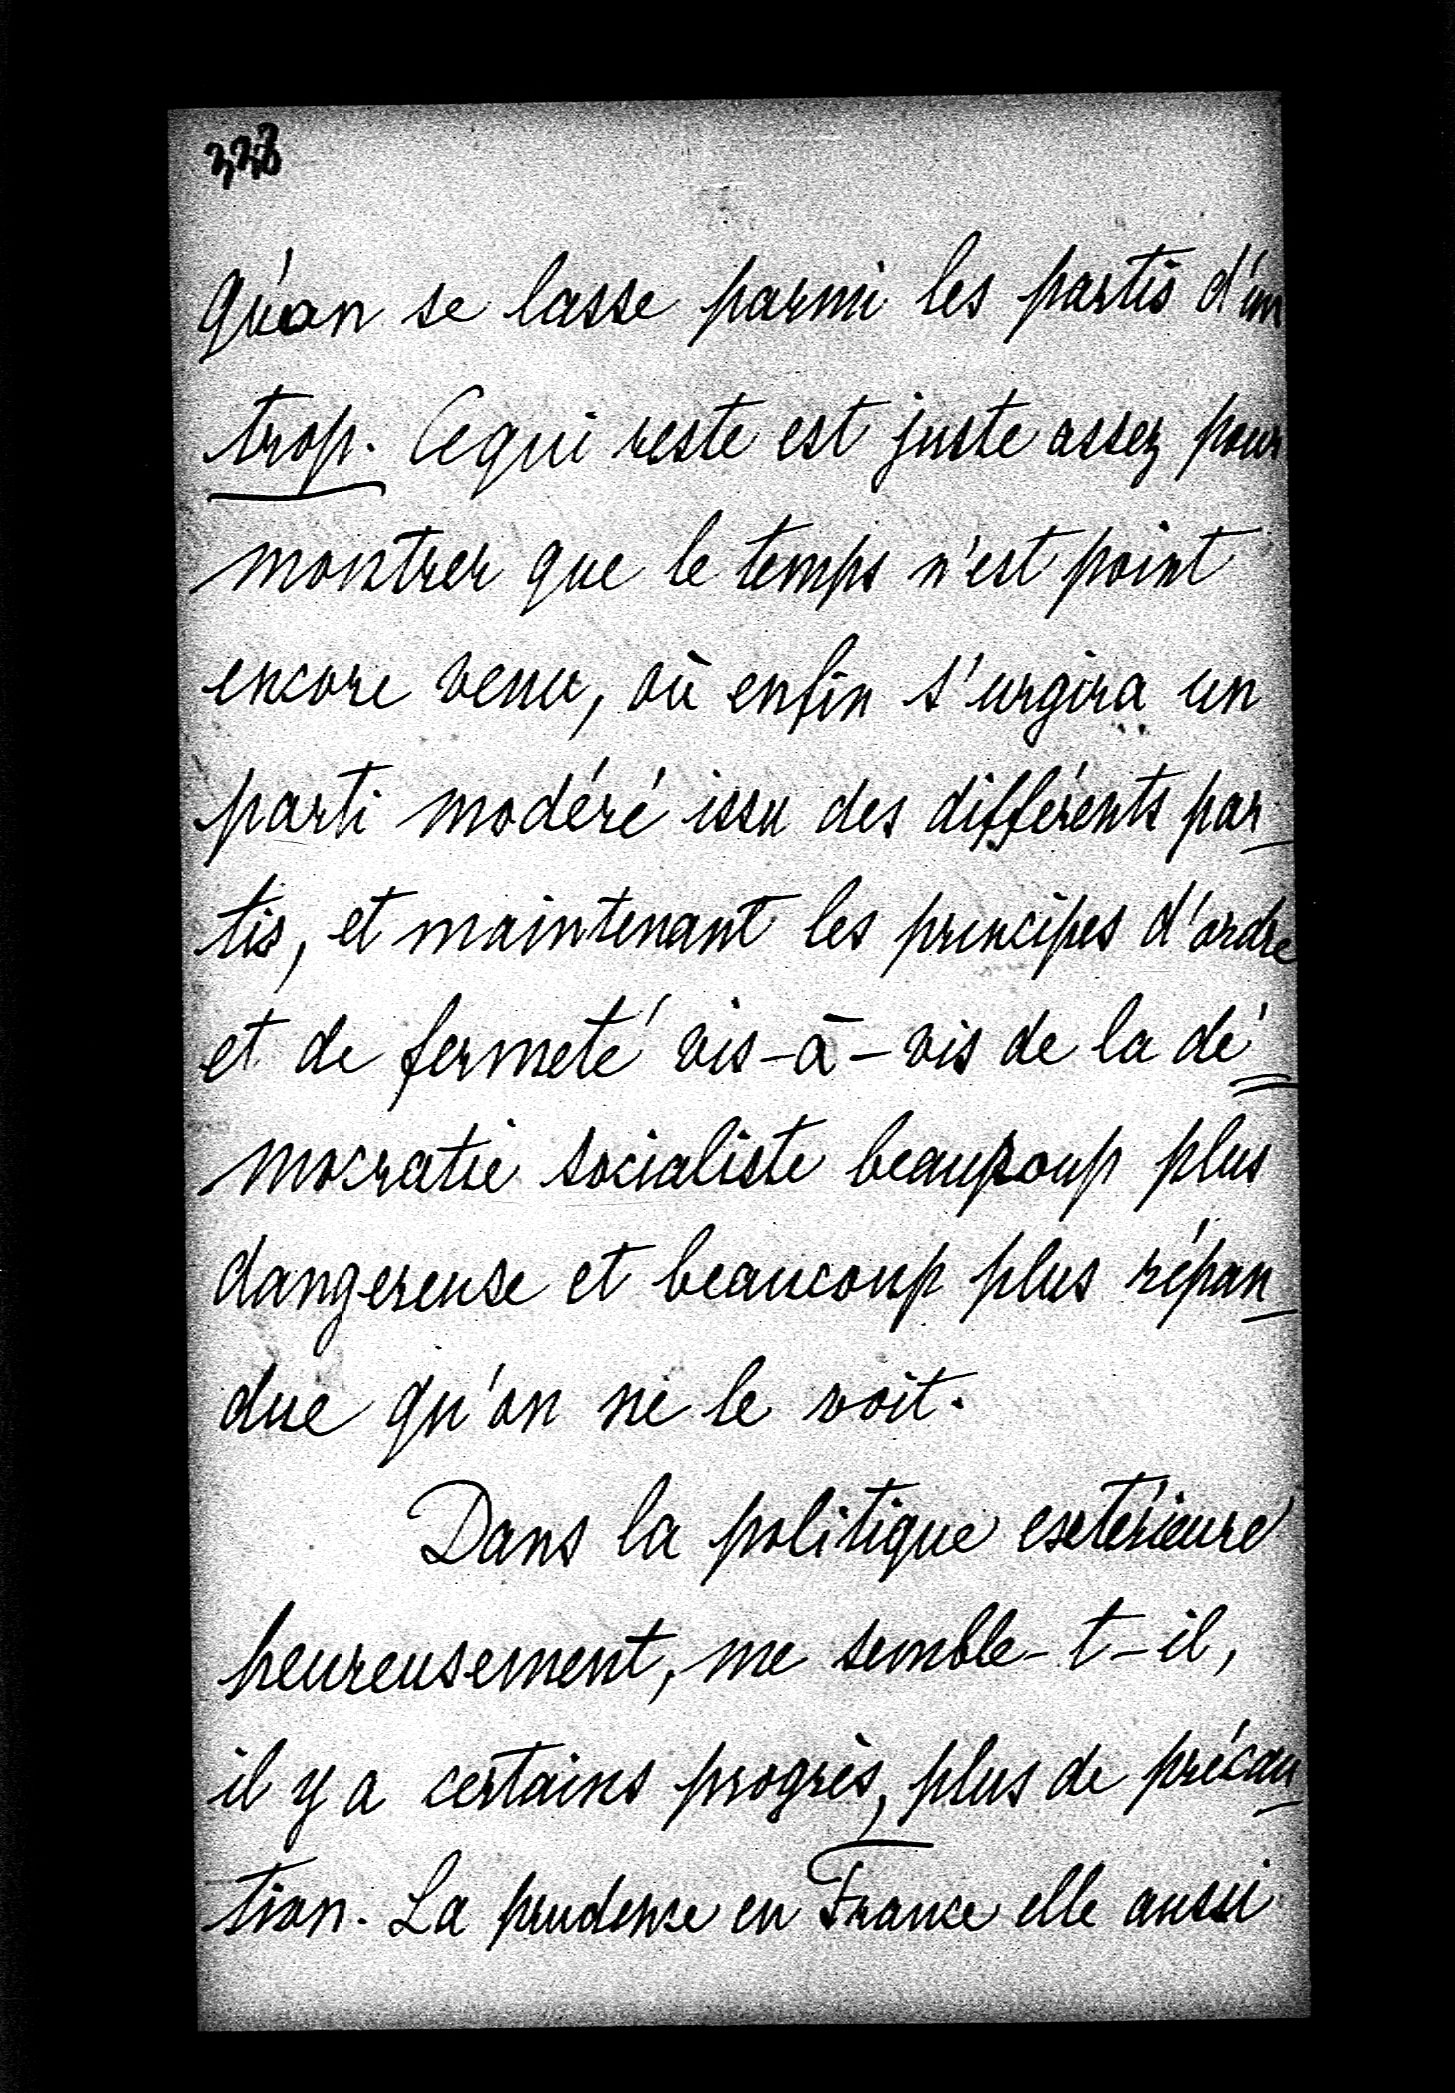 338
qu'on se lasse parmi les partis d'un
trop. Ce qui reste est juste assez pour
montrer que le temps n'est point
encore venu, où enfin s'urgira un
parti modéré issu des différents par-
tis, et maintenant les principes d'ordre
et de fermeté vis-à-vis de la dé=
mocratie socialiste beaucoup plus
dangereuse et beaucoup plus répan-
due qu'on ne le voit.
Dans la politique extérieure
heureusement, me semble-t-il,
il y a certains progrès, plus de précau-
tion. La prudence en France elle aussi